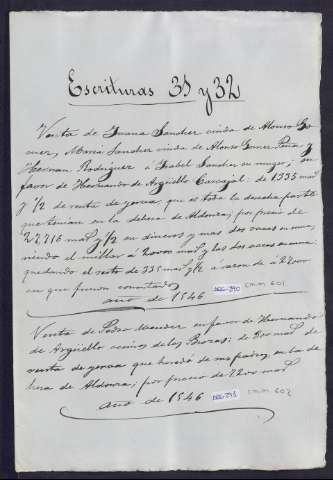 Escrituras 31 y 32
Venta de Juana Sanchez viuda de Alonso
Maria Sanchez viuda de Alonso Gomez Peña y
Hernan Rodriguez é Isabel Sanchez su muger; en
favor de Hernando de Argüello Carvajal de 1335 mrs
y 1/2 de renta de yerva, que es toda la derecha parte
que tenian en la dehesa de Aldonza; por precio de
27.716 mrs y 1/2 en dineros y mas dos vacas en
el millar á 20.000 mrs y las dos vacas en
quedando el resto de 335 mrs y 1/2 á razon de á 22.000
en que fueron
año de 1546 DEC-240 CM.M 601
Venta de Pedro en favor de Hernando
de Argüello vecinos de las Brozas; de 500 mrs de
renta de yerva que heredó de sus padres, en la de
hesa de Aldonza; por precio de 2200 mrs
año de 1546 DEC-241 CM.M 602